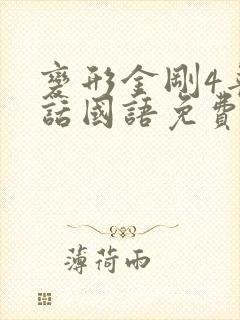 變形金剛4
話國語免費
薄荷雨